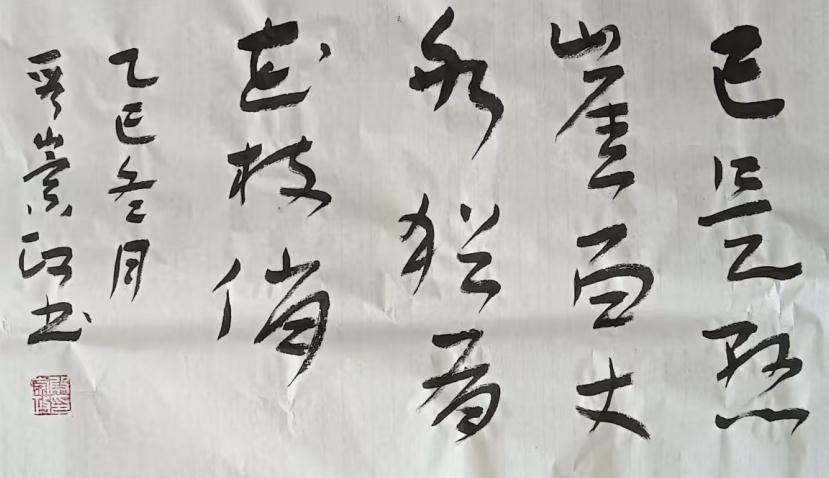 已是悬
崖百丈
冰犹有
花枝俏
乙巳冬月
崇政书